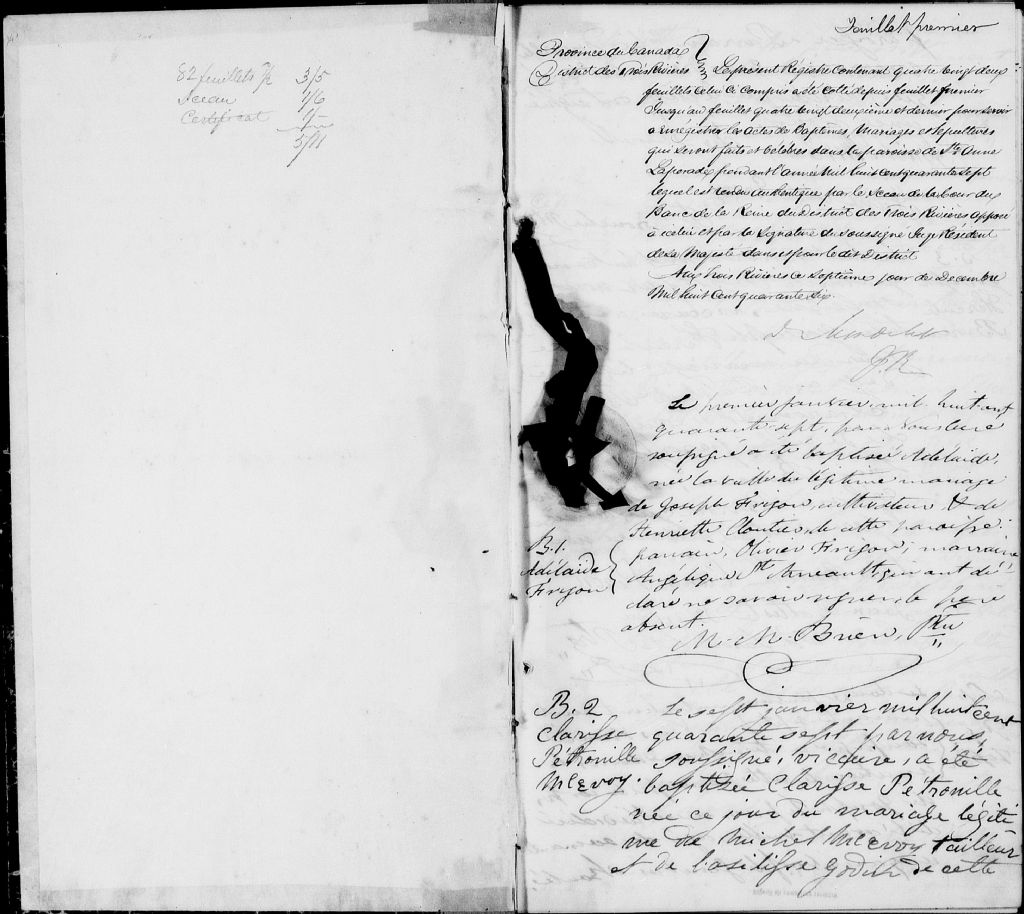 82 feuillets 3/5
Sceau 1/6
Certificat 1/-
5/11
Feuillet premier
Province du Canada
District des Trois Rivières Le présent Registre Contenant quatre vingt deux
feuillets Celui Ci Compris a été Cotté depuis feuillet premier
Jusqu'au feuillet quatre vingt deuxième et dernier pour servir
a Enrégistrer les actes de Baptêmes, Mariages et sépultures
qui seront faits et Célébrés dans la paroisse de Ste Anne
Laperade pendant l'année Mil huit Cent quarante Sept
lequel est rendu authentique par le Sceau de la Cour du
Banc de la Reine du District des Trois Rivières apposé
à icelui et par la Signature du soussigné Juge Résident
de Sa Majesté dans et pour le dit District
Aux Trois Rivières Ce Septième jour de Décembre
Mil huit Cent quarante Six.
J.R.
Le premier janvier, mil huit cent
quarante-sept, par nous curé
soussigné a été baptisée Adélaïde,
née la veille du légitime mariage
de Joseph Frigon, cultivateur & de
Henriette Cloutier, de cette paroisse:
parrain, Olivier Frigon; marraine
Angélique St Arneault qui ont dé-
claré ne savoir signer, le père
absent.
M. M. Brien, Ptre
B. 1.
Adélaïde
Frigon
B. 2
Clarisse
Pétronille
McEvoy.
Le sept janvier mil huit cent
quarante sept par nous,
soussigné, vicaire, a été
baptisée Clarisse Pétronille
née ce jour du mariage légiti
me de Michel McEvoy tailleur
et de Basilisse Godin de cette